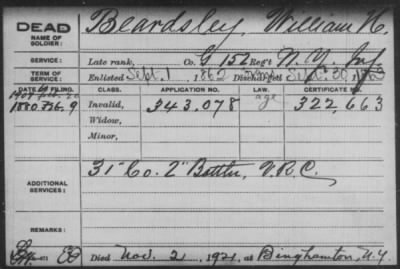 DEAD
NAME OF SOLDIER:
Beardsley, William H.
SERVICE:
Late rank, Co. G 152 Reg't N.Y. Inf.
TERM OF SERVICE:
Enlisted Sept. 1, 1862 Discharged Sept. 30, 1863
DATE OF FILING. CLASS. APPLICATION NO. LAW. CERTIFICATE NO.
1880. 9 Invalid, 343,078 age 322,663
Widow,
Minor,
ADDITIONAL SERVICES:
31" Co. 2" Battn, V.R.C.
REMARKS:
Died Nov. 2, 1921, at Binghamton, N.Y.